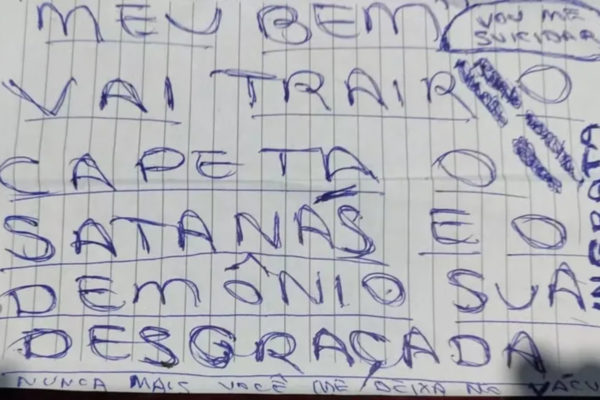 MEU BEM
VOU ME
SUICIDAR
VAI TRAIR O
CAPETA O
SATANÁS E O
DEMÔNIO SUA
DESGRAÇADA
INGRATA
NUNCA MAIS VOCÊ ME DEIXA NO VÁCU